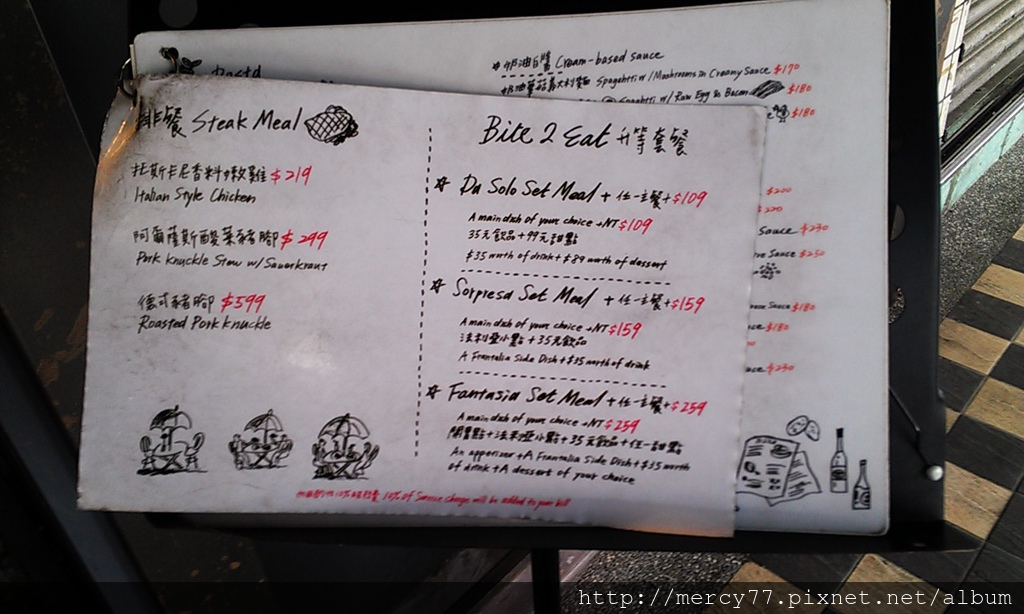 Pasta
奶油白醬 Cream-based sauce
奶油蘑菇義大利麵 Spaghetti w/ Mushrooms in Creamy Sauce $170
Spaghetti w/ Raw Egg & Bacon $180
$180
$200
$220
Sauce $230
Sauce $250
Sauce $180
$180
$230
排餐 Steak Meal
托斯卡尼香料嫩雞 $219
Italian Style Chicken
阿爾薩斯酸菜豬腳 $299
Pork Knuckle Stew w/ Sauerkraut
德式豬腳 $599
Roasted Pork Knuckle
Bite 2 Eat 升等套餐
Da Solo Set Meal + 任一主餐 + $109
A main dish of your choice + NT $109
35元飲品 + 99元甜點
$35 worth of drink + $89 worth of dessert
Sorpresa Set Meal + 任一主餐 + $159
A main dish of your choice + NT $159
法利亞小點 + 35元飲品
A Frantalia Side Dish + $35 worth of drink
Fantasia Set Meal + 任一主餐 + $259
A main dish of your choice + NT $259
開胃點 + 法利亞小點 + 35元飲品 + 任一甜點
An appetizer + A Frantalia Side Dish + $35 worth
of drink + A dessert of your choice
10% of Service Charge will be added to your bill
http://mercy77.pixnet.net/album